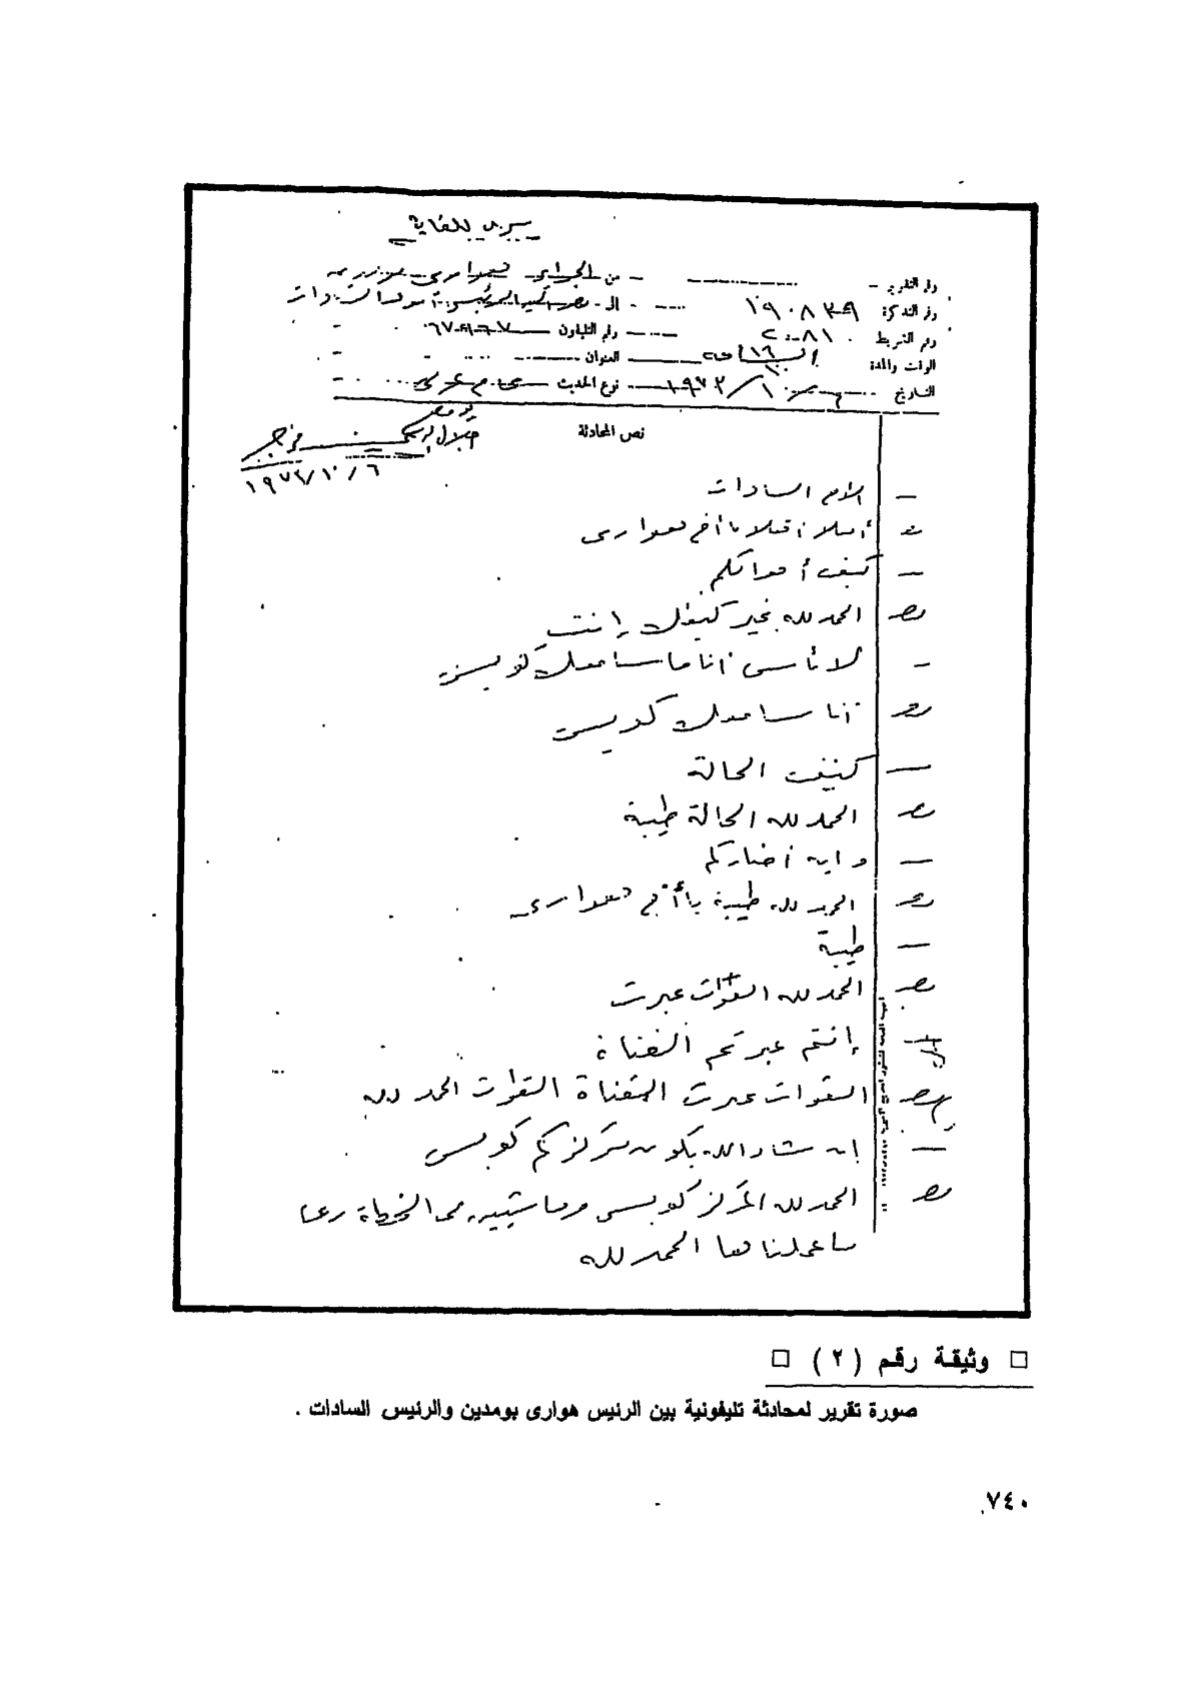 سرى للغاية
رقم التقرير - من الجزائر هوارى بومدين
رقم التذكرة ١٩٠٨٣٩ الى - مصر السيد الرئيس أنور السادات
رقم الشريط ٢٠٨١ رقم التليفون
الوقت والمدة الساعة ١٦ العنوان
التاريخ ١٠/ ١٩٧٣ نوع الحديث
نص المحادثة
١٩٧٣/١٠/٦
— الأخ السادات
مصر أهلا أهلا يا أخ هوارى
— كيف أحوالكم
مصر الحمد لله بخير كيفك إنت
— لا بأس أنا سامعك كويس
مصر أنا سامعك كويس
— كيف الحالة
مصر الحمد لله الحالة طيبة
— وايه أخباركم
مصر الحمد لله طيبة يا أخ هوارى
— طيبة
مصر الحمد لله القوات عبرت
إنتم عبرتم القناة
مصر القوات عبرت القناة القوات الحمد لله
— إن شاء الله يكون مركزكم كويس
مصر الحمد لله المركز كويس وماشيين في الخطة
الحمد لله
□ وثيقة رقم (٢) □
صورة تقرير لمحادثة تليفونية بين الرئيس هوارى بومدين والرئيس السادات .
٧٤٠